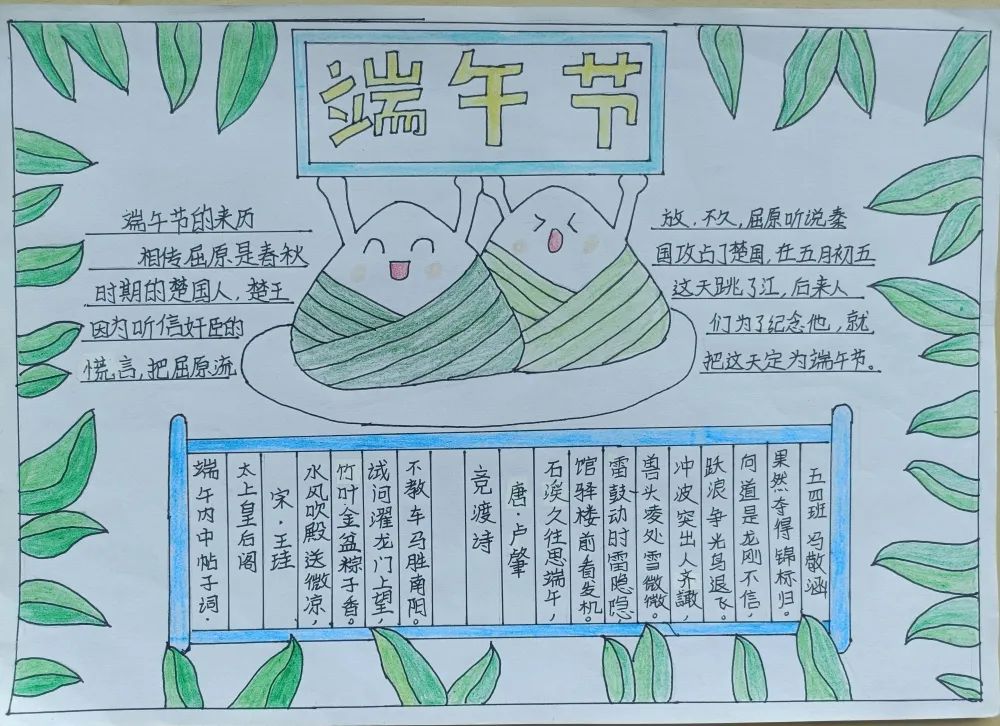 端午节
端午节的来历
相传屈原是春秋
时期的楚国人，楚王
因为听信奸臣的
慌言，把屈原流
放，不久，屈原听说秦
国攻占了楚国，在五月初五
这天跳了江，后来人
们为了纪念他，就
把这天定为端午节。
端午内中帖子词·
太上皇后阁
宋·王珪
水风吹殿送微凉，
竹叶金盆粽子香。
试问濯龙门上望，
不教车马胜南阳。
竞渡诗
唐·卢肇
石溪久住思端午，
馆驿楼前看发机。
鼙鼓动时雷隐隐，
兽头凌处雪微微。
冲波突出人齐譀，
跃浪争先鸟退飞。
向道是龙刚不信，
果然夺得锦标归。
五四班 冯敬涵